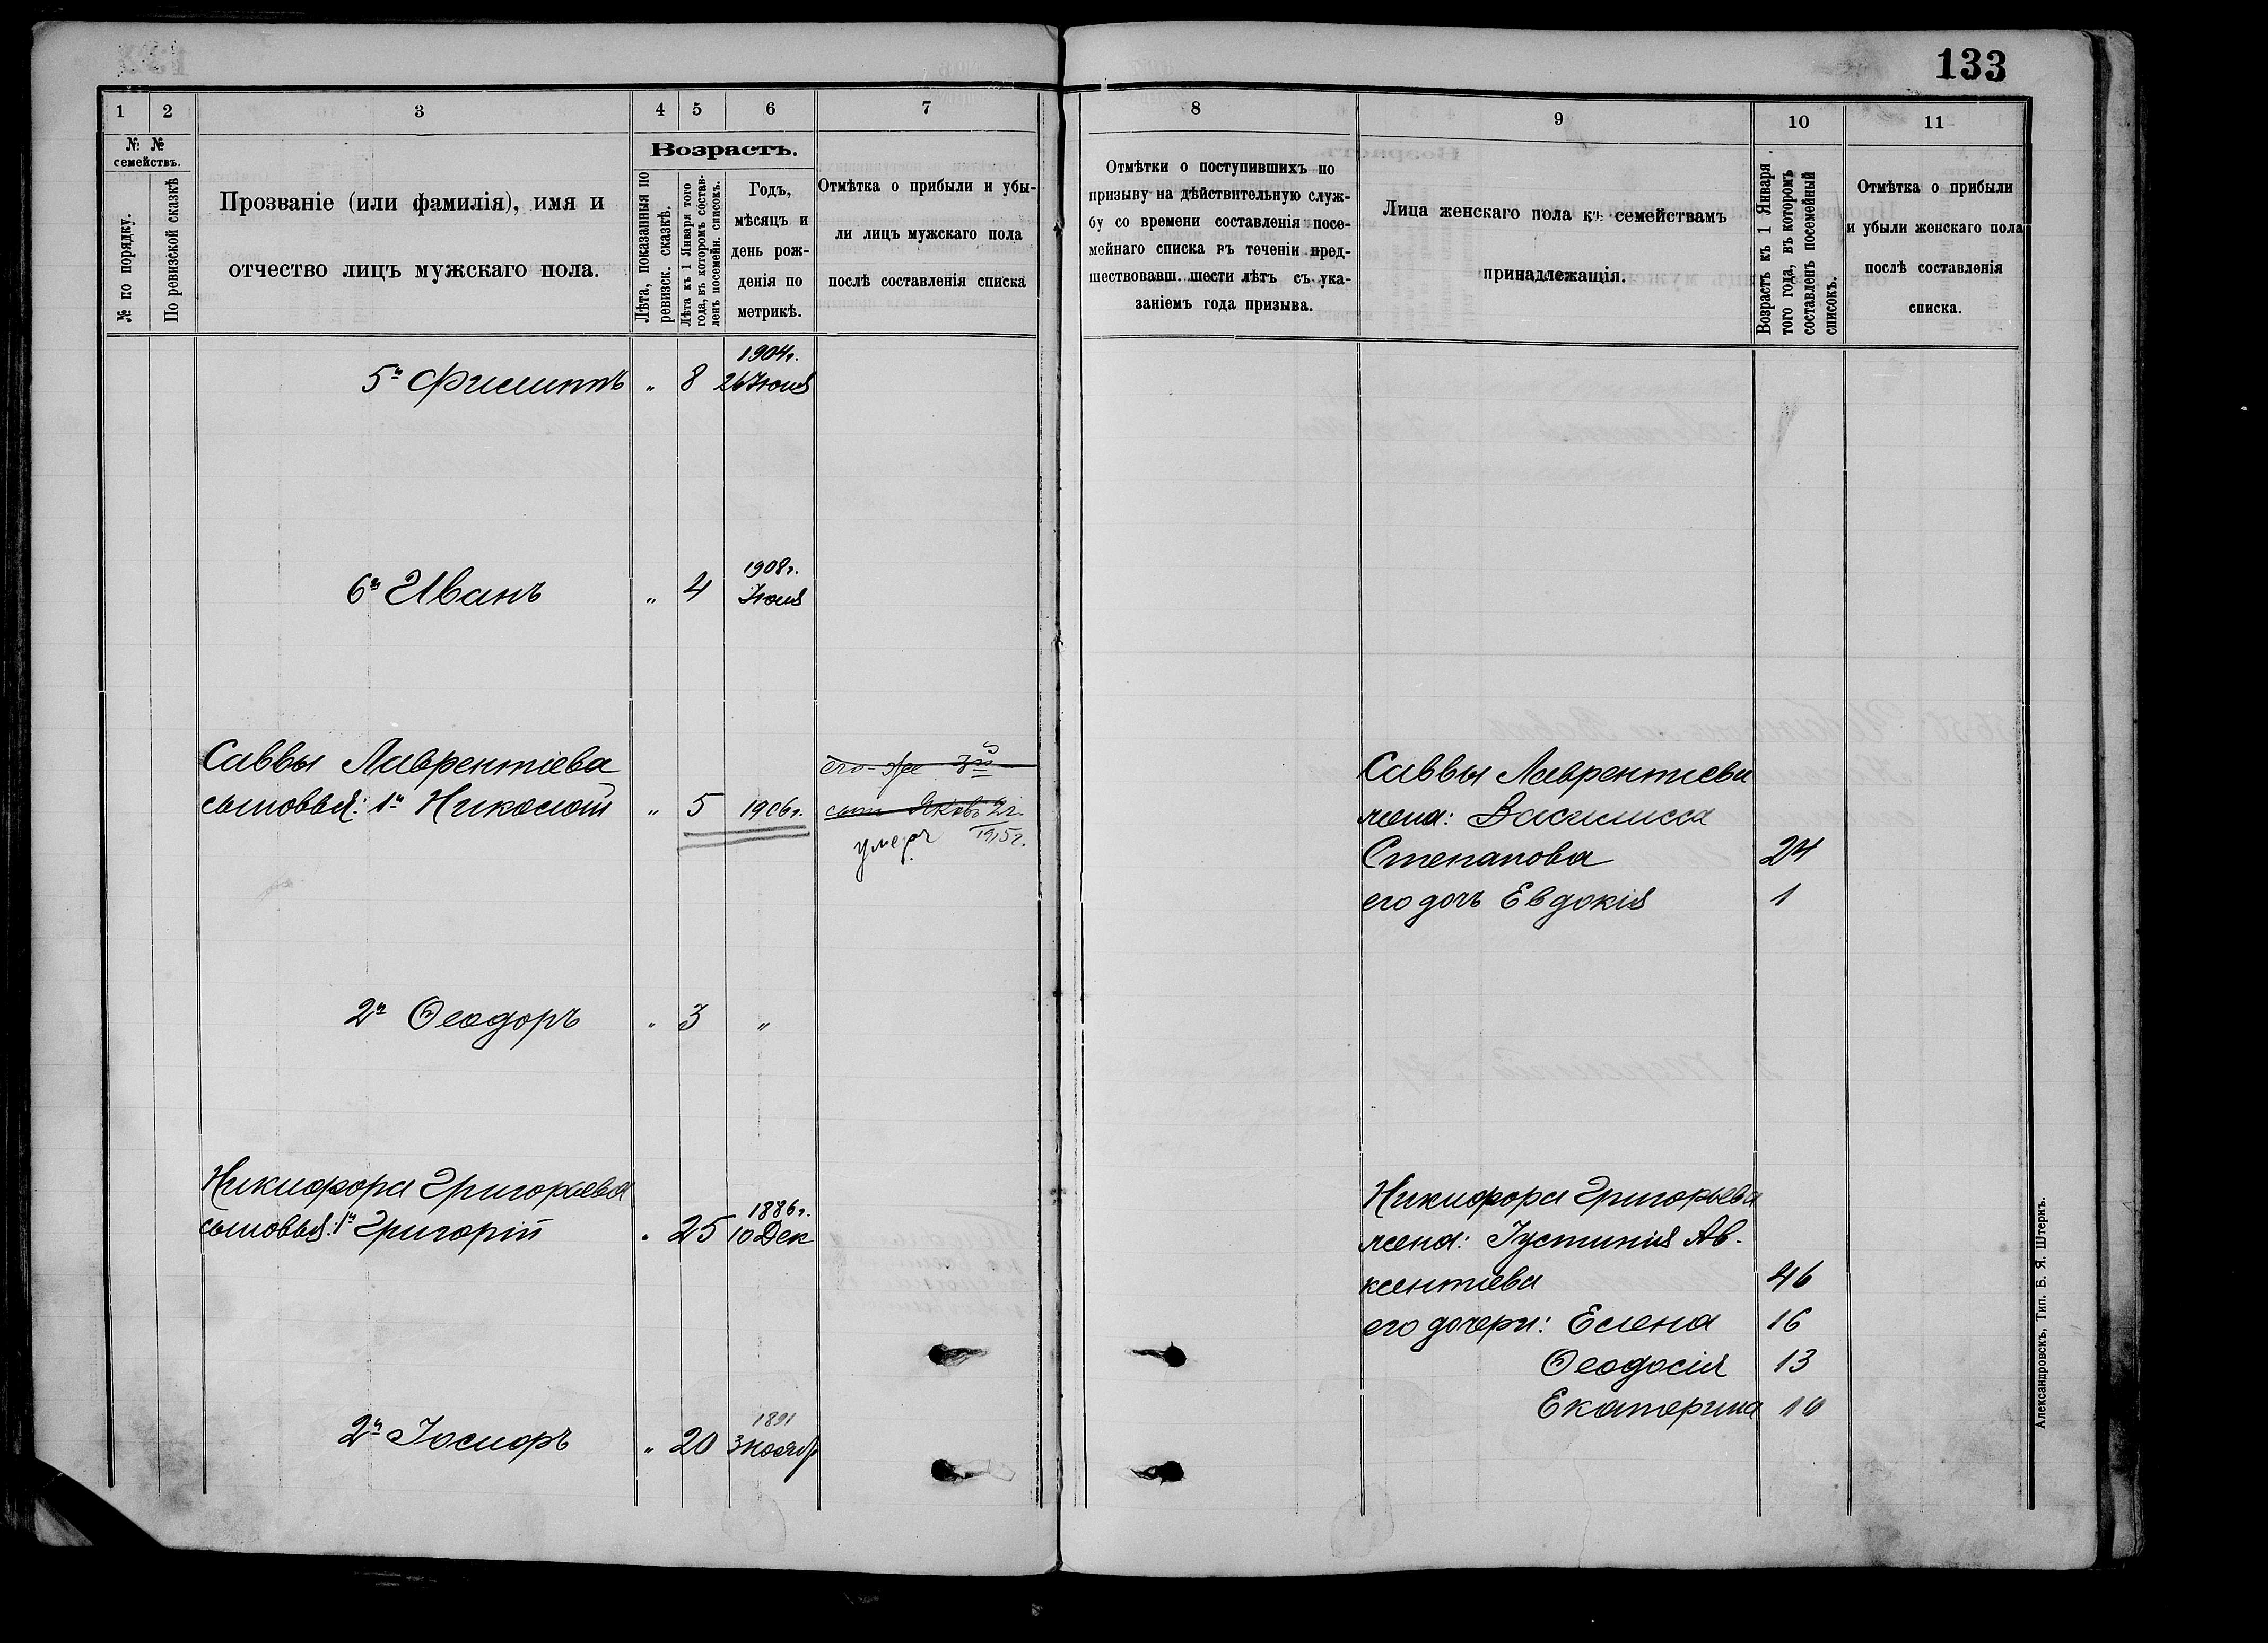 133
1
2
3
4
5
6
7
№ №
семействъ.
№ по порядку.
По ревизской сказкѣ
Прозваніе (или фамилія), имя и
отчество лицъ мужскаго пола.
Возрастъ.
Лѣта, показанныя по
ревизск. сказкѣ.
Лѣта къ 1 Января того
года, въ которомъ состав-
ленъ посемейн. списокъ.
Годъ,
мѣсяцъ и
день рож-
денія по
метрикѣ.
Отмѣтка о прибыли и убы-
ли лицъ мужскаго пола
послѣ составленія списка
1904г.
5й Филиппъ " 8 26 Іюня
1908г.
6й Иванъ " 4 Іюня
Саввы Лаврентіева
сыновья: 1й Николай " 5 1906г.
его-же 3й
сынъ Яковъ 2г.
1915г.
умеръ
2й Ѳеодоръ " 3 "
Никифора Григорьева
1886г.
сыновья: 1й Григорій " 25 10 Дек
1891
2й Іосифъ " 20 3 Ноября
8
9
10
11
Отмѣтки о поступившихъ по
призыву на дѣйствительную служ-
бу со времени составленія посе-
мейнаго списка въ теченіи пред-
шествовавш. шести лѣтъ съ ука-
заніемъ года призыва.
Лица женскаго пола къ семействамъ
принадлежащія.
Возрастъ къ 1 Января
того года, въ которомъ
составленъ посемейный
списокъ.
Отмѣтка о прибыли
и убыли женскаго пола
послѣ составленія
списка.
Саввы Лаврентіева
жена: Василисса
Степанова 24
его дочь Евдокія 1
Никифора Григорьева
жена: Іустинія Ав-
ксентіева 46
его дочери: Елена 16
Ѳеодосія 13
Екатерина 10
Александровскъ, Тип. Б. Я. Штернъ.